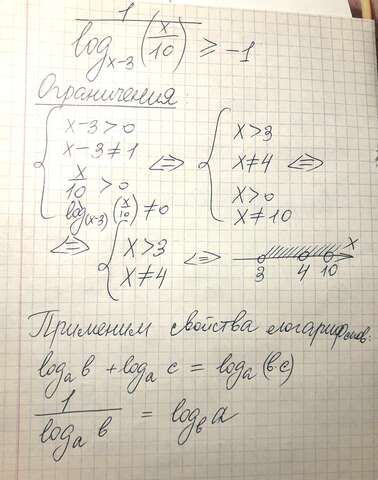 1/log_{x-3}(x/10) ≥ -1
Ограничения
{ x-3>0
x-3≠1
x/10 >0
log_{(x-3)}(x/10) ≠0
⇔ { x>3
x≠4
x>0
x≠10 ⇔
⇔ { x>3
x≠4 ⇔ 3 4 10 x
Применим свойства логарифмов:
log_a b + log_a c = log_a (b·c)
1/log_a b = log_b a